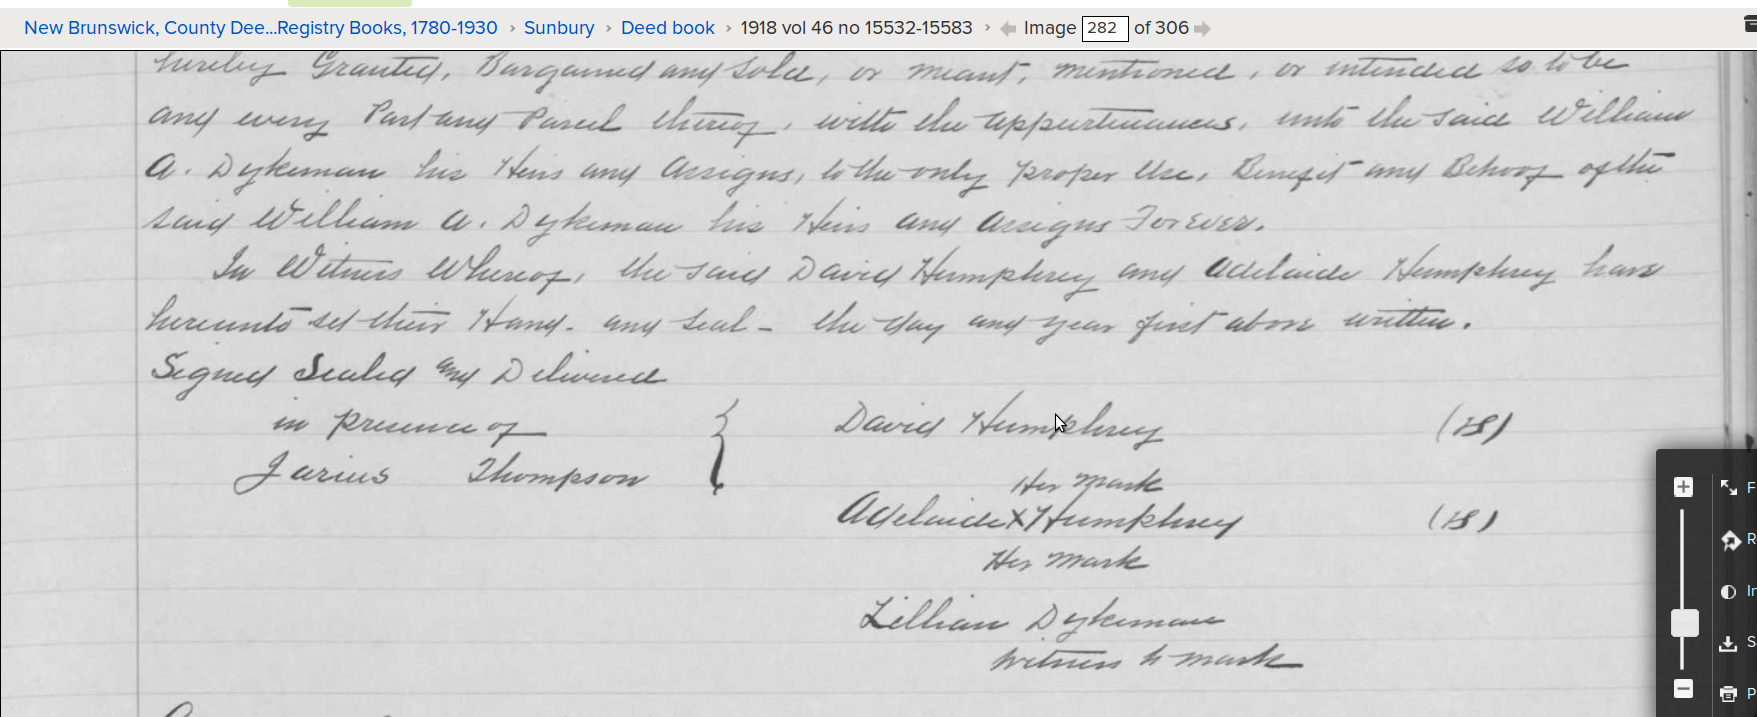 New Brunswick, County Dee...Registry Books, 1780-1930 › Sunbury › Deed book › 1918 vol 46 no 15532-15583 › Image 282 of 306
hereby Granted, Bargained and Sold, or meant, mentioned, or intended so to be
and every Part and Parcel thereof, with the appurtenances, unto the said William
A. Dykeman his Heirs and Assigns, to the only proper Use, Benefit and Behoof of the
said William A. Dykeman his Heirs and Assigns Forever.
In Witness Whereof, the said David Humphrey and Adelaide Humphrey have
hereunto set their Hand - and Seal - the day and year first above written.
Signed Sealed and Delivered
in presence of
Jarius Thompson
David Humphrey (LS)
Her Mark
Adelaide X Humphrey (LS)
Her Mark
Lillian Dykeman
Witness to mark
F
R
In
S
P